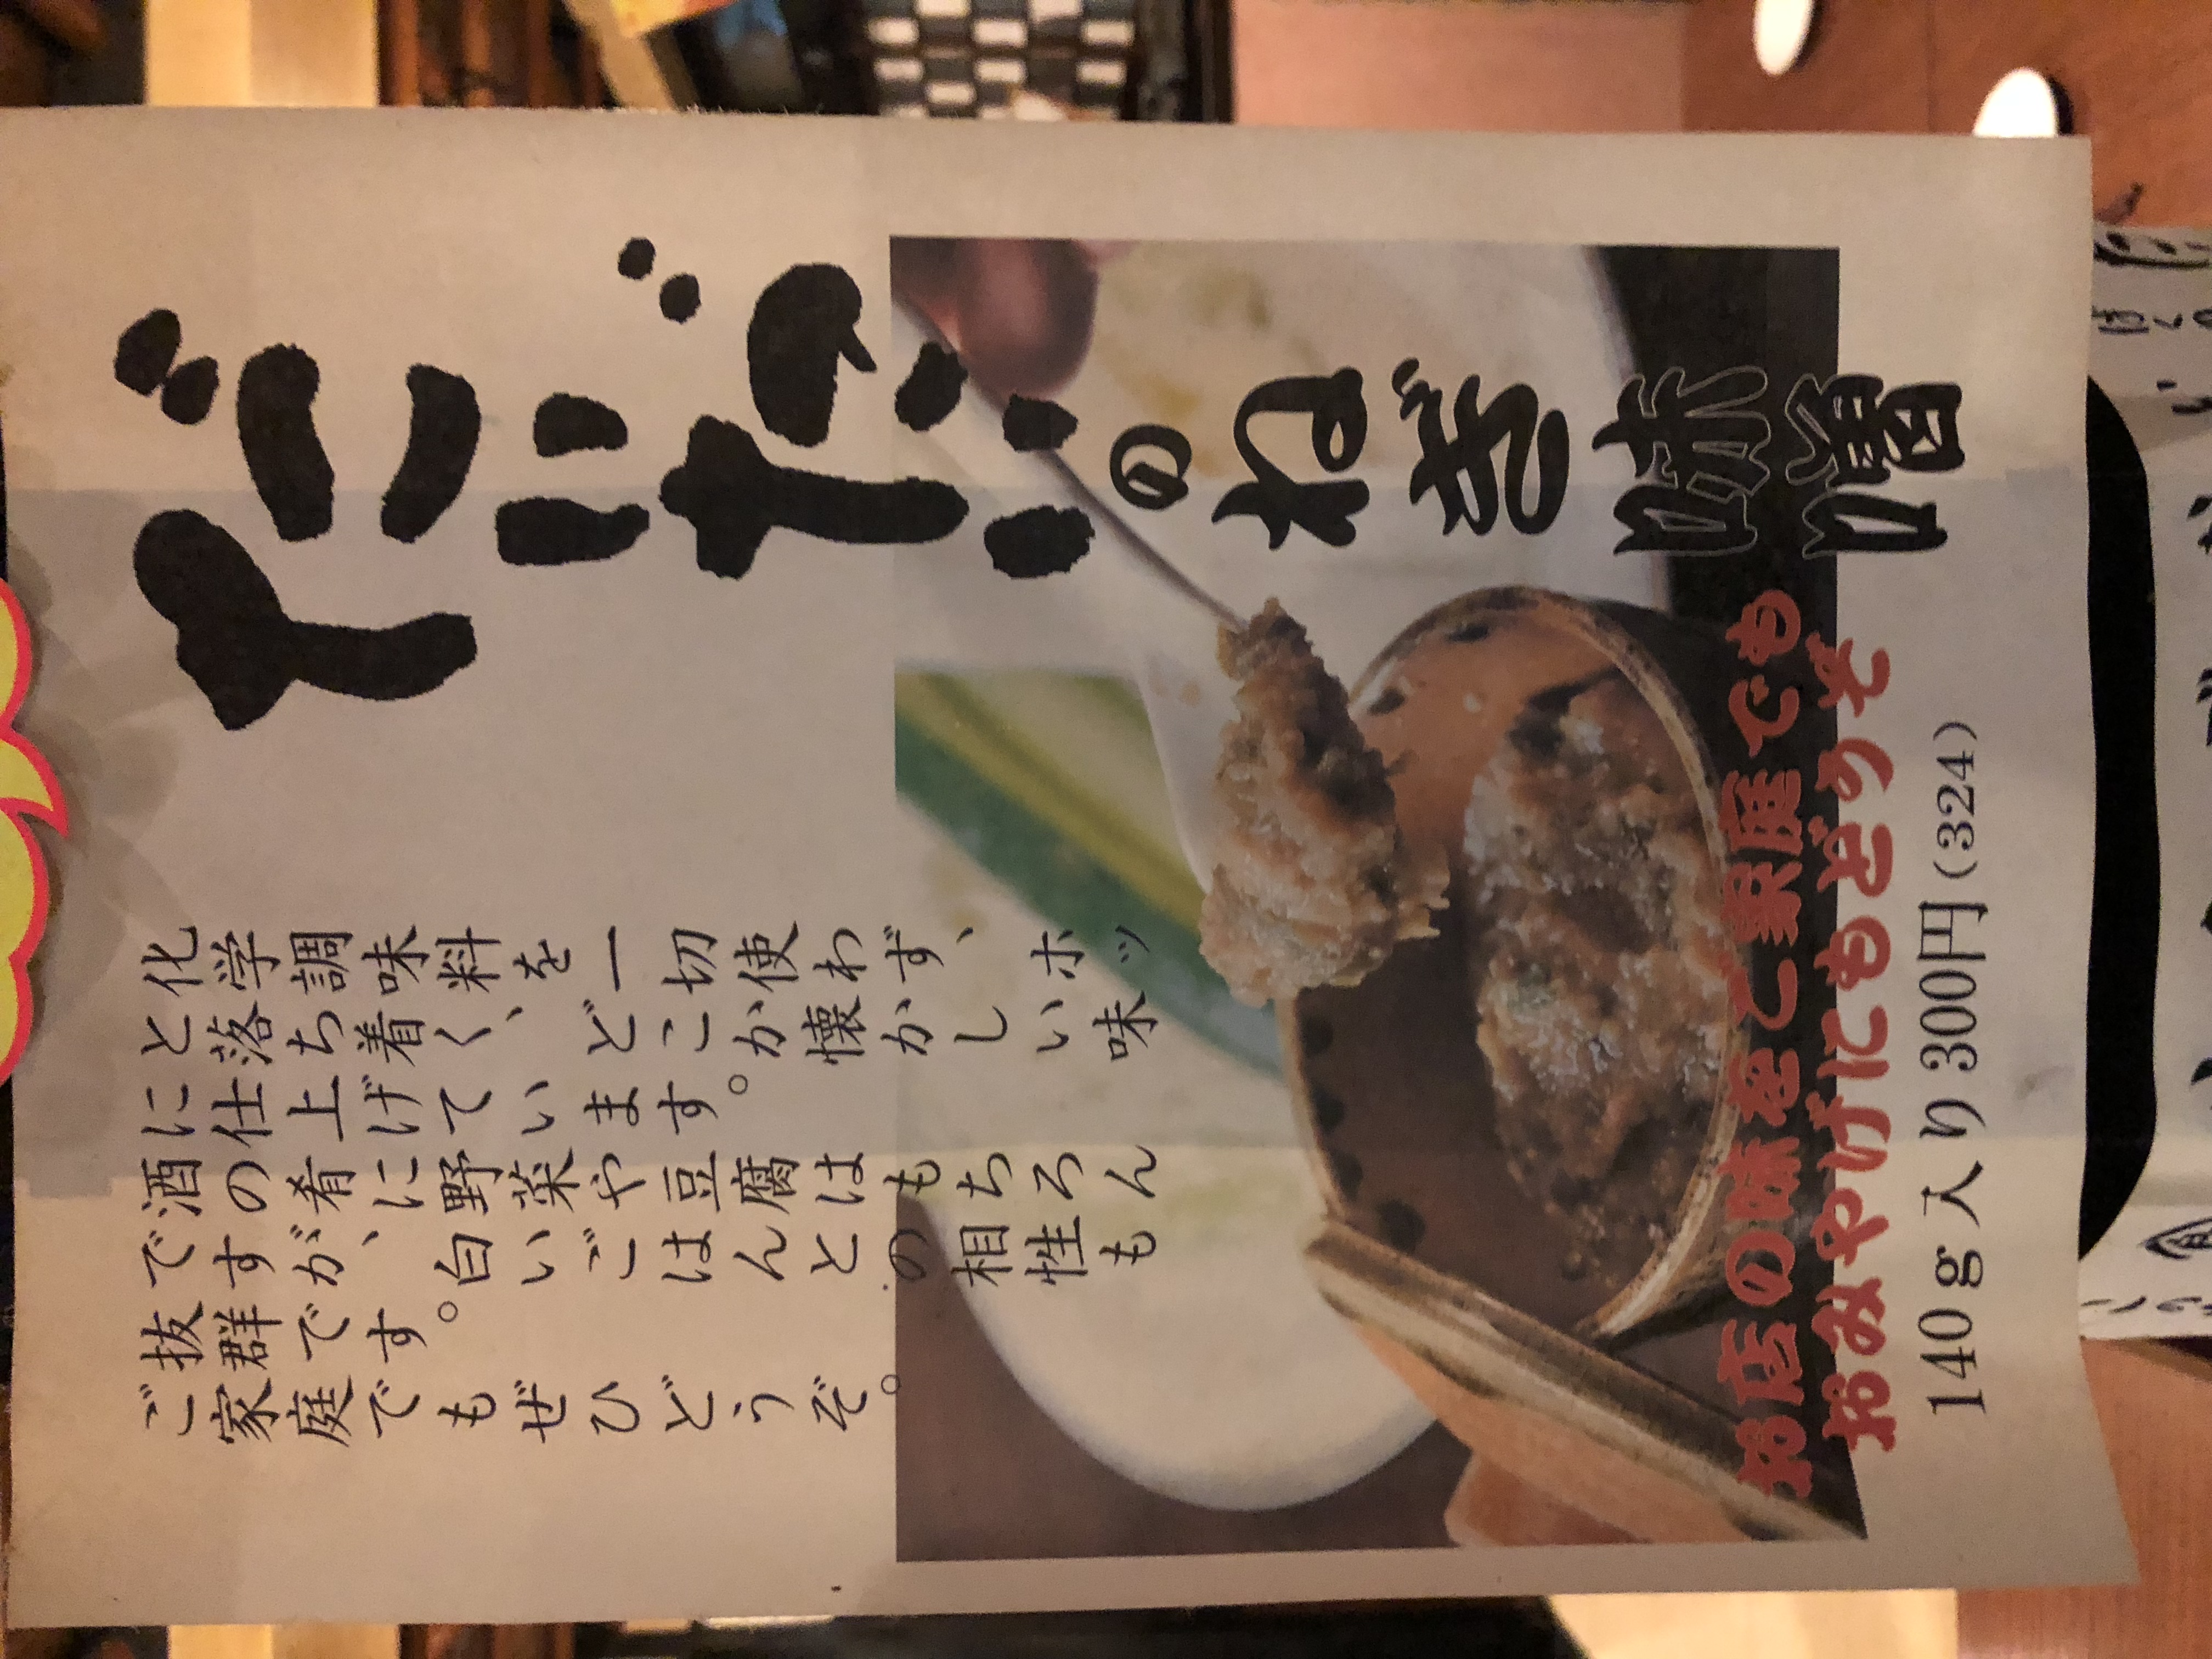 のねぎ味噌
化学調味料を一切使わず、ホッ
と落ち着く、どこか懐かしい味
に仕上げています。
酒の肴に野菜や豆腐はもちろん
ですが、白いごはんとの相性も
抜群です。
ご家庭でもぜひどうぞ。
お店の味をご家庭でも
おみやげにもどうぞ
140g入り300円(324)